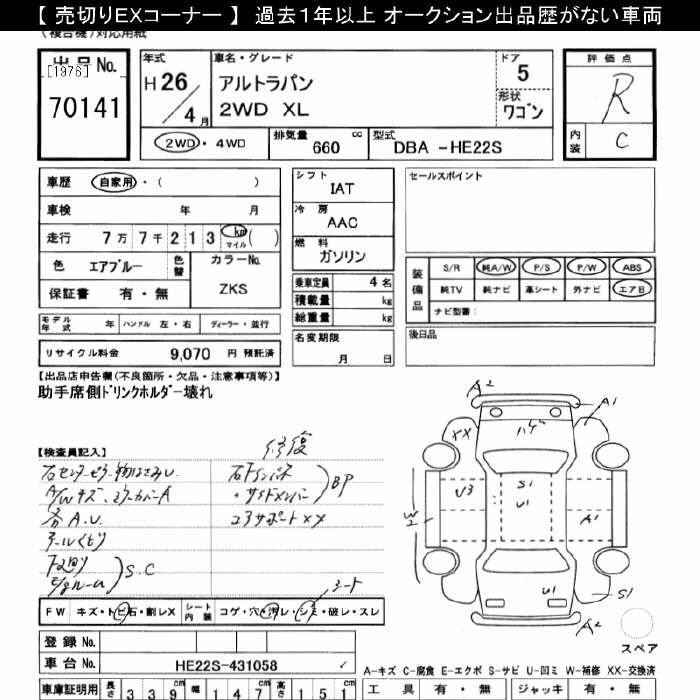 【 売切りEXコーナー 】 過去1年以上 オークション出品歴がない車両
(複合機)対応用紙
出品No.
[1976]
70141
年式
H 26 / 4 月
車名・グレード
アルトラパン
2WD XL
ドア
5
形状
ワゴン
評価点
R
内装
C
2WD・4WD
排気量
660 cc
型式
DBA -HE22S
車歴 自家用・( )
車検 年 月
走行 7万7千213 km マイル ( )
色 エアブルー 色替
カラーNo.
ZKS
保証書 有・無
シフト
IAT
冷房
AAC
燃料
ガソリン
乗車定員 4 名
積載量 kg
総重量 kg
名変期限
月 日
セールスポイント
装備品
S/R 純A/W P/S P/W ABS
純TV 純ナビ 革シート 外ナビ エアB
ナビ型番:
後日品
モデル年式 年 ハンドル 左・右 ディーラー・並行
リサイクル料金 9,070 円 預託済
【出品店申告欄(不良箇所・欠品・注意事項等)】
助手席側ドリンクホルダー壊れ
【検査員記入】
修復
右センターピラー物はさみし
A/Wキズ、ミラーカバーA
各A.U.
S.C
BP
コアサポートXX
シート
FW キズ・トビ石・割レX
シート内装 コゲ・穴・汚レ・シミ・破レ・スレ
登録No.
車台No. HE22S-431058
車庫証明用 長さ 339 cm 幅 147 cm 高さ 151 cm
A2
A1
XX
ハゲ
U3
S1
U1
W2
A1
U1
S1
A2
スペア
A-キズ C-腐食 E-エクボ S-サビ U-凹ミ W-補修 XX-交換済
工具 有・無 ジャッキ 有・無